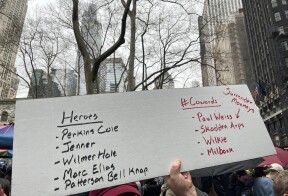 Heroes:
- Perkins Coie
- Jenner
- Wilmer Hale
- Marc Elias
- Patterson Bell Knap
#Cowards
Surrender Monkeys
- Paul Weiss
- Skadden Arps
- Wilkie
- Milbank